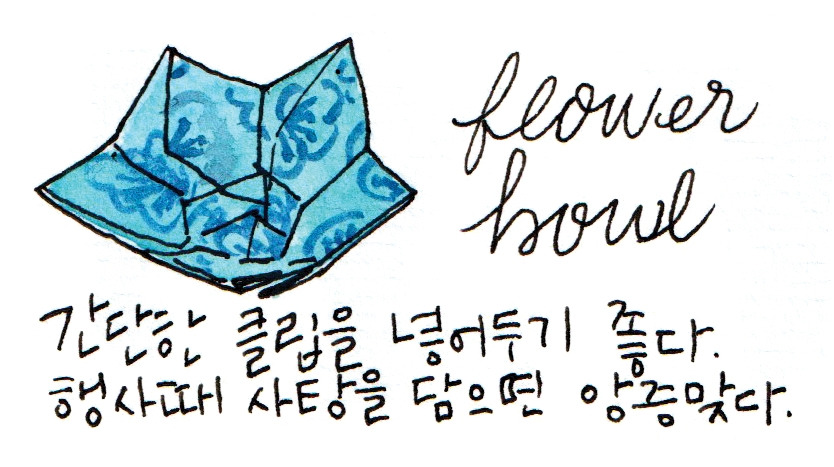 flower
bowl
간단한 클립을 넣어두기 좋다.
행사때 사탕을 담으면 앙증맞다.